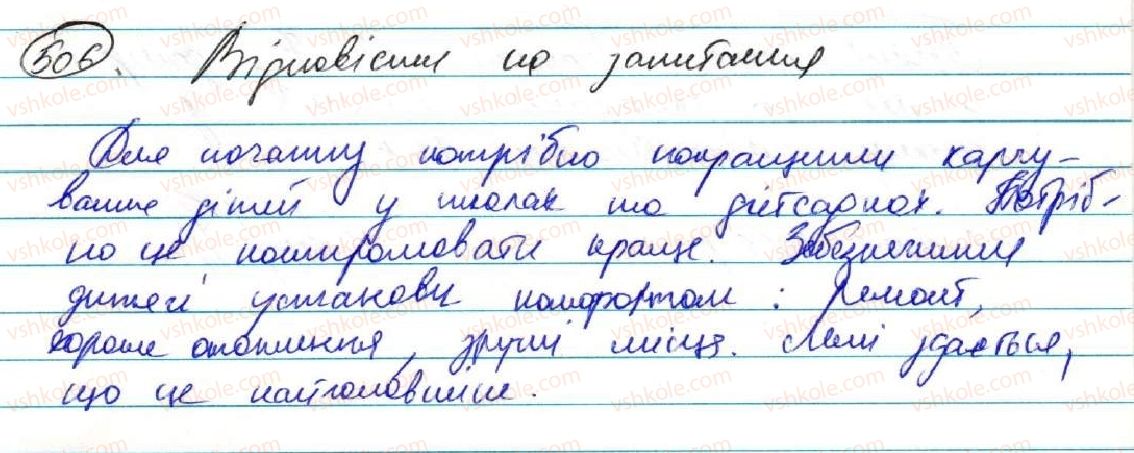 506. Відповісти на запитання
Для початку потрібно покращити харчу-
вання дітей у школах та дитсадках. Потріб-
но це контролювати краще. Забезпечити
дитячі установи комфортом: ремонт,
хороше опалення, зручні місця. Мені здається,
що це найголовніше.